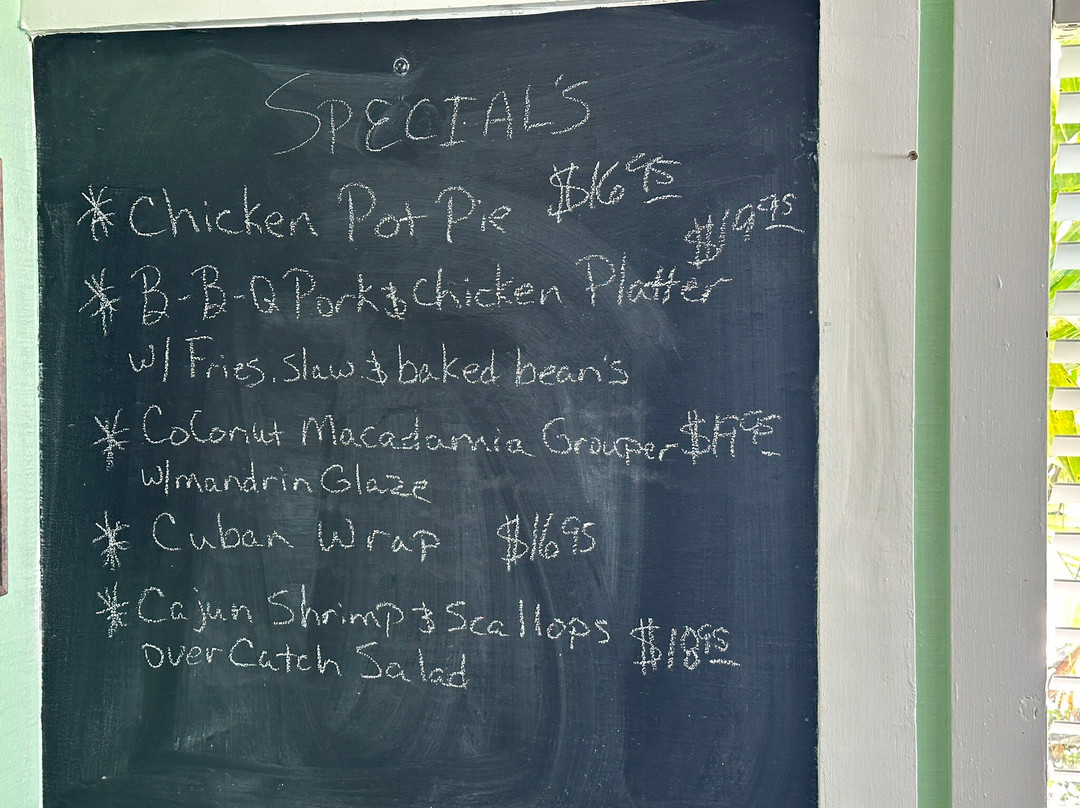 SPECIAL'S
* Chicken Pot Pie $16 95
* B-B-Q Pork & Chicken Platter $19 95
w/ Fries, slaw & baked bean's
* Coconut Macadamia Grouper
w/mandrin Glaze
* Cuban Wrap $16 95
* Cajun Shrimp & Scallops
over Catch Salad $18 95